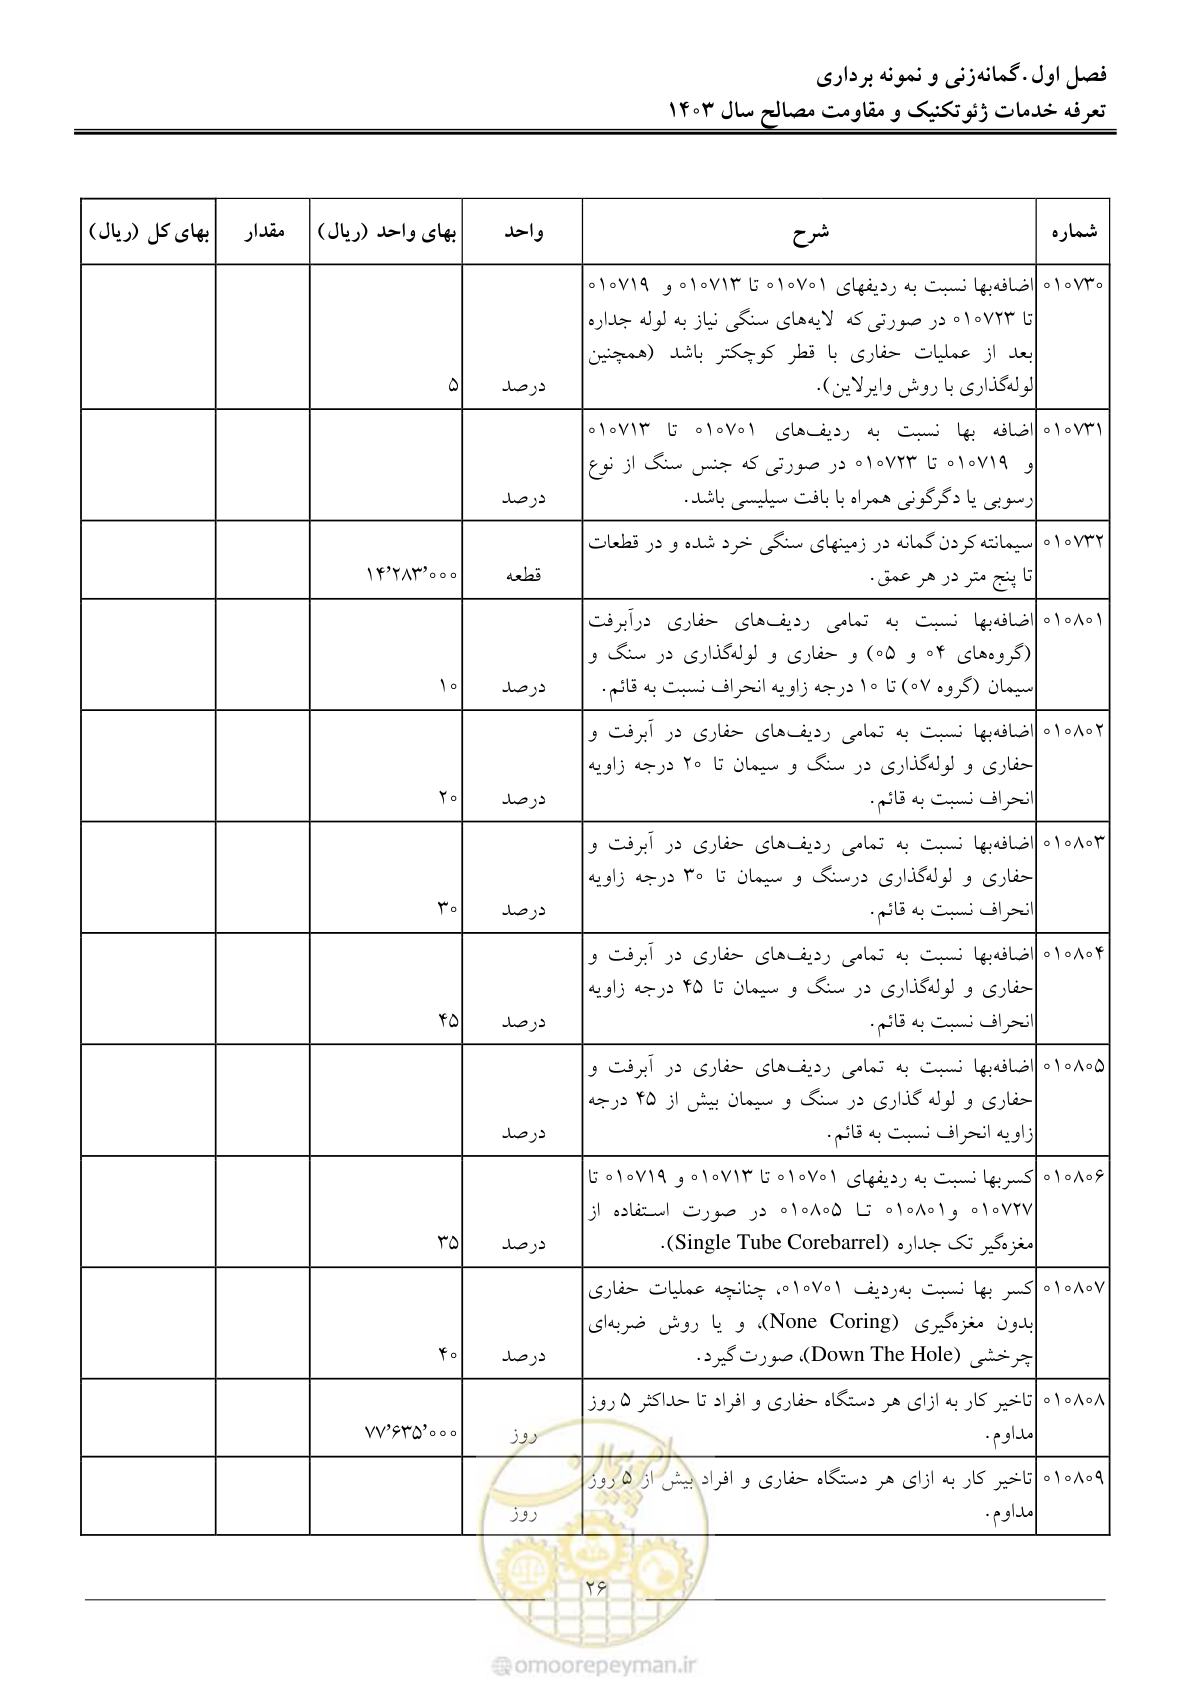 فصل اول.گمانه‌زنی و نمونه برداری
تعرفه خدمات ژئوتکنیک و مقاومت مصالح سال ۱۴۰۳
شماره شرح واحد بهای واحد (ریال) مقدار بهای کل (ریال)
۰۱۰۷۳۰ اضافه‌بها نسبت به ردیفهای ۰۱۰۷۰۱ تا ۰۱۰۷۱۳ و ۰۱۰۷۱۹
تا ۰۱۰۷۲۳ در صورتی که لایه‌های سنگی نیاز به لوله جداره
بعد از عملیات حفاری با قطر کوچکتر باشد (همچنین
لوله‌گذاری با روش وایرلاین). درصد ۵
۰۱۰۷۳۱ اضافه بها نسبت به ردیف‌های ۰۱۰۷۰۱ تا ۰۱۰۷۱۳
و ۰۱۰۷۱۹ تا ۰۱۰۷۲۳ در صورتی که جنس سنگ از نوع
رسوبی یا دگرگونی همراه با بافت سیلیسی باشد. درصد
۰۱۰۷۳۲ سیمانته کردن گمانه در زمینهای سنگی خرد شده و در قطعات
تا پنج متر در هر عمق. قطعه ۱۴٬۲۸۳٬۰۰۰
۰۱۰۸۰۱ اضافه‌بها نسبت به تمامی ردیف‌های حفاری درآبرفت
(گروه‌های ۰۴ و ۰۵) و حفاری و لوله‌گذاری در سنگ و
سیمان (گروه ۰۷) تا ۱۰ درجه زاویه انحراف نسبت به قائم. درصد ۱۰
۰۱۰۸۰۲ اضافه‌بها نسبت به تمامی ردیف‌های حفاری در آبرفت و
حفاری و لوله‌گذاری در سنگ و سیمان تا ۲۰ درجه زاویه
انحراف نسبت به قائم. درصد ۲۰
۰۱۰۸۰۳ اضافه‌بها نسبت به تمامی ردیف‌های حفاری در آبرفت و
حفاری و لوله‌گذاری درسنگ و سیمان تا ۳۰ درجه زاویه
انحراف نسبت به قائم. درصد ۳۰
۰۱۰۸۰۴ اضافه‌بها نسبت به تمامی ردیف‌های حفاری در آبرفت و
حفاری و لوله‌گذاری در سنگ و سیمان تا ۴۵ درجه زاویه
انحراف نسبت به قائم. درصد ۴۵
۰۱۰۸۰۵ اضافه‌بها نسبت به تمامی ردیف‌های حفاری در آبرفت و
حفاری و لوله گذاری در سنگ و سیمان بیش از ۴۵ درجه
زاویه انحراف نسبت به قائم. درصد
۰۱۰۸۰۶ کسربها نسبت به ردیفهای ۰۱۰۷۰۱ تا ۰۱۰۷۱۳ و ۰۱۰۷۱۹ تا
۰۱۰۷۲۷ و۰۱۰۸۰۱ تا ۰۱۰۸۰۵ در صورت استفاده از
مغزه‌گیر تک جداره (Single Tube Corebarrel). درصد ۳۵
۰۱۰۸۰۷ کسر بها نسبت به‌ردیف ۰۱۰۷۰۱، چنانچه عملیات حفاری
بدون مغزه‌گیری (None Coring)، و یا روش ضربه‌ای
چرخشی (Down The Hole)، صورت‌گیرد. درصد ۴۰
۰۱۰۸۰۸ تاخیر کار به ازای هر دستگاه حفاری و افراد تا حداکثر ۵ روز
مداوم. روز ۷۷٬۶۳۵٬۰۰۰
۰۱۰۸۰۹ تاخیر کار به ازای هر دستگاه حفاری و افراد بیش از ۵ روز
مداوم. روز
۲۶
امورپیمان
@omoorepeyman.ir